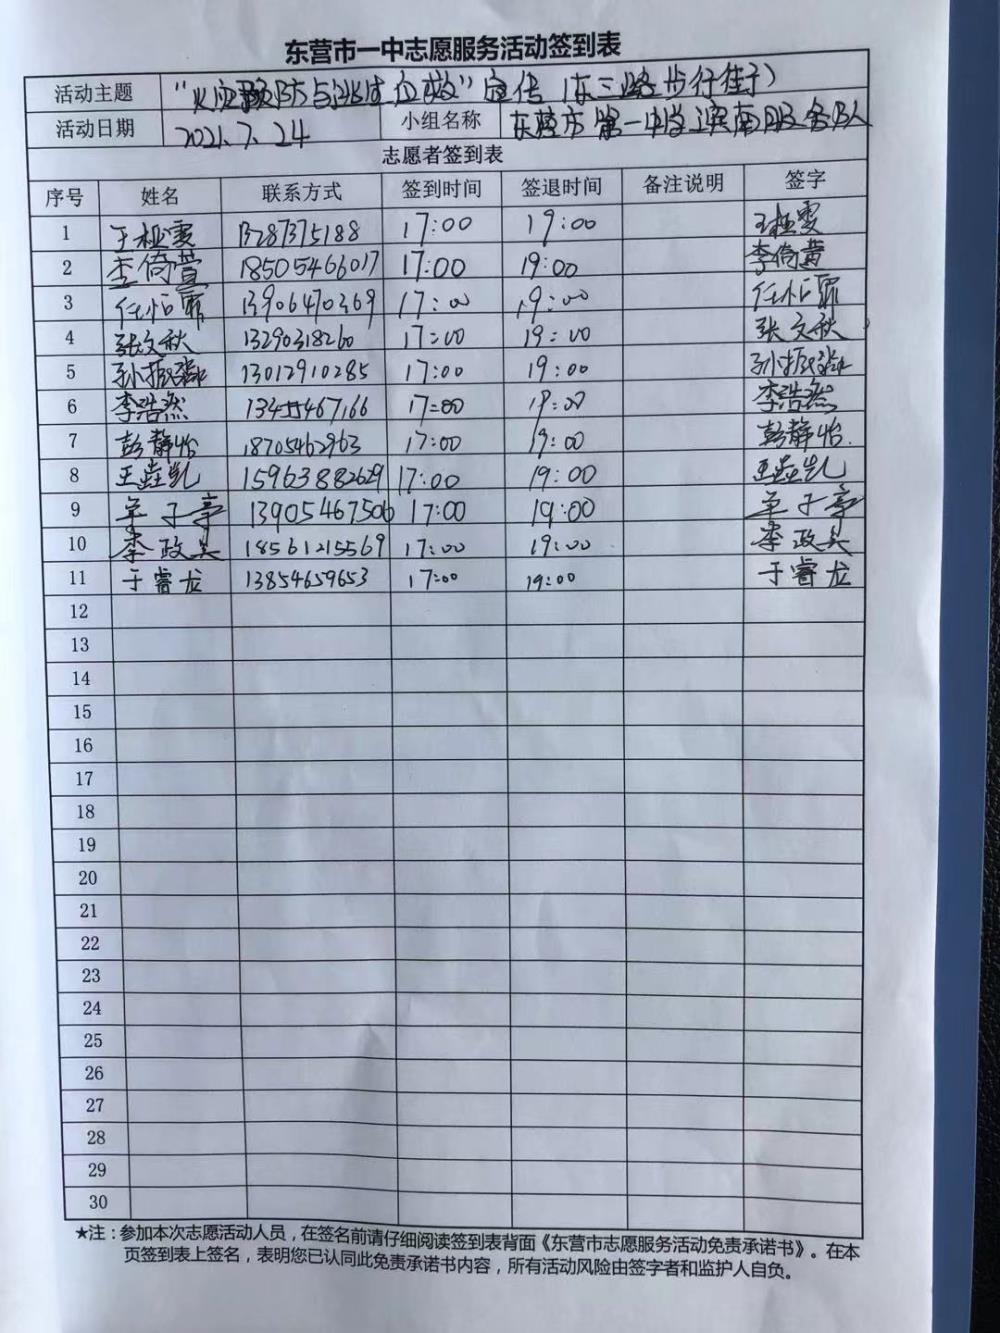 东营市一中志愿服务活动签到表
活动主题 “火灾预防与逃生自救”宣传（东三路步行街）
活动日期 2021.7.24 小组名称 东营市第一中学滨南服务队
志愿者签到表
序号 姓名 联系方式 签到时间 签退时间 备注说明 签字
1 王桠雯 13287375188 17:00 19:00 王桠雯
2 李倚萱 18505466017 17:00 19:00 李倚萱
3 任怡霏 13906470369 17:00 19:00 任怡霏
4 张文秋 13290318260 17:00 19:00 张文秋
5 孙振 13012910285 17:00 19:00 孙振
6 李浩然 13455467166 17:00 19:00 李浩然
7 彭静怡 18705462963 17:00 19:00 彭静怡
8 王垚凯 15963882629 17:00 19:00 王垚凯
9 单子亭 13905467506 17:00 19:00 单子亭
10 李政昊 18561215569 17:00 19:00 李政昊
11 于睿龙 13854659653 17:00 19:00 于睿龙
12
13
14
15
16
17
18
19
20
21
22
23
24
25
26
27
28
29
30
★注：参加本次志愿活动人员，在签名前请仔细阅读签到表背面《东营市志愿服务活动免责承诺书》。在本
页签到表上签名，表明您已认同此免责承诺书内容，所有活动风险由签字者和监护人自负。